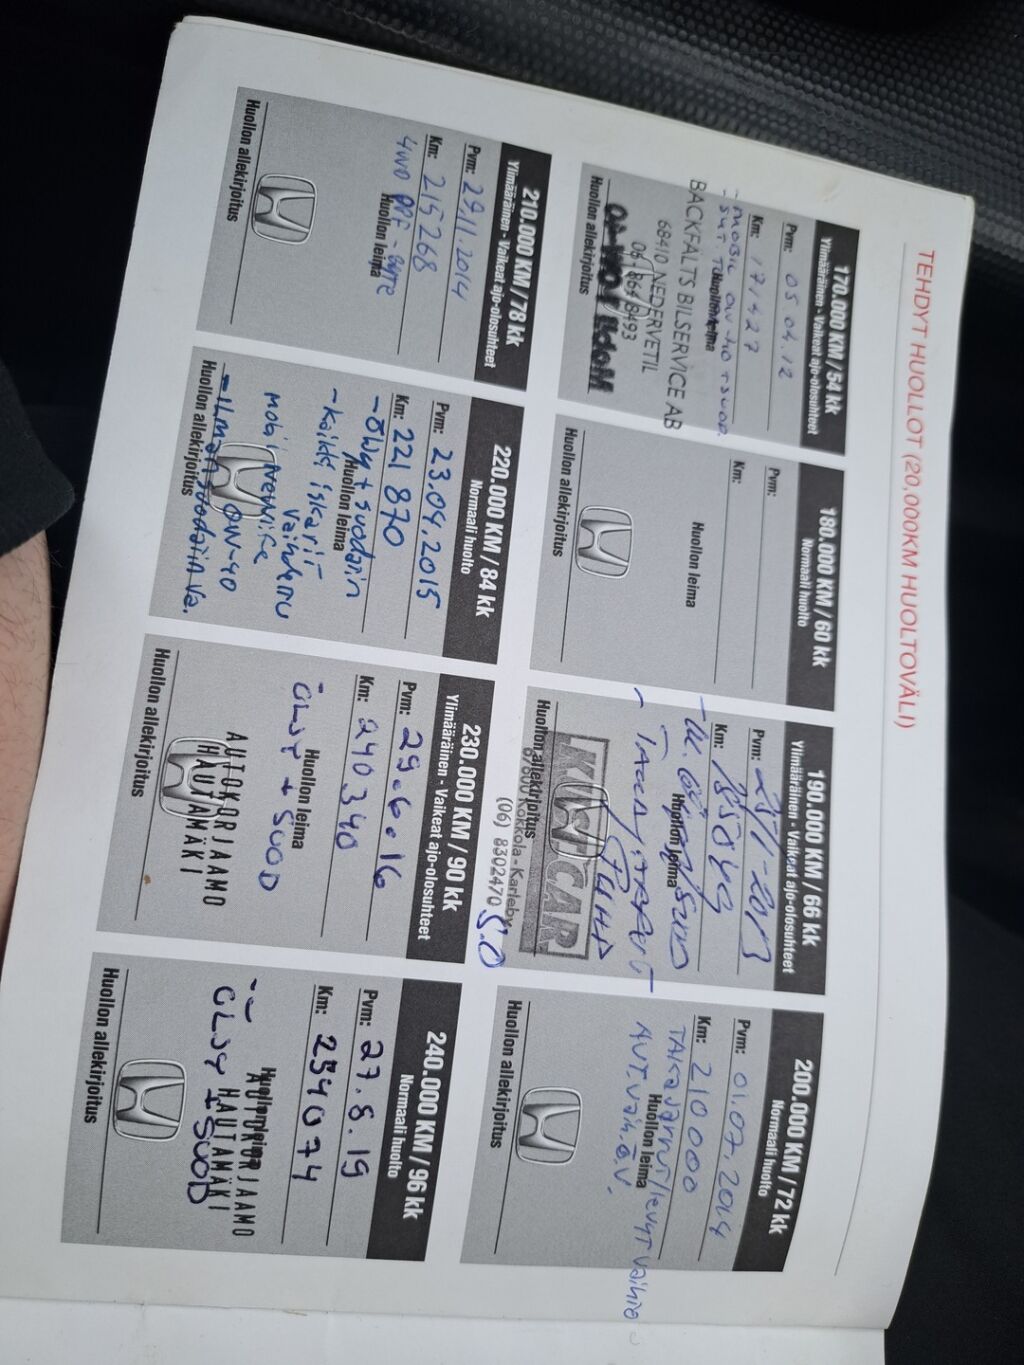 TEHDYT HUOLLOT (20,000KM HUOLTOVÄLI)
170.000 KM / 54 kk
Ylimääräinen - Vaikeat ajo-olosuhteet
Pvm: 05.04.12
Km: 171427
Huollon leima
- MOBIL OW-40 + SUOD.
BACKFALTS BILSERVICE AB
68410 NEDERVETIL
06 8648493
Huollon allekirjoitus
180.000 KM / 60 kk
Normaali huolto
Pvm:
Km:
Huollon leima
Huollon allekirjoitus
190.000 KM / 66 kk
Ylimääräinen - Vaikeat ajo-olosuhteet
Pvm:
Km:
Huollon leima
CAR
67600 Kokkola-Karleby
(06) 8302470
Huollon allekirjoitus
200.000 KM / 72 kk
Normaali huolto
Pvm: 01.07.2014
Km: 210000
TAKAJARRUT/LEVYT VAIHTO
Huollon leima
AUT.VAIH.Ö.V.
Huollon allekirjoitus
210.000 KM / 78 kk
Ylimääräinen - Vaikeat ajo-olosuhteet
Pvm: 29.11.2014
Km: 215268
Huollon leima
4WD
Huollon allekirjoitus
220.000 KM / 84 kk
Normaali huolto
Pvm: 23.04.2015
Km: 221 870
- öljy + suodatin
Huollon leima
- Kaikki iskarit
Vaihdettu
OW-40
- Ilmansuodatin va.
Huollon allekirjoitus
230.000 KM / 90 kk
Ylimääräinen - Vaikeat ajo-olosuhteet
Pvm: 29.6.16
Km: 240340
Huollon leima
ÖLJY + SUOD
AUTOKORJAAMO
HAUTAMÄKI
Huollon allekirjoitus
240.000 KM / 96 kk
Normaali huolto
Pvm: 27.8.19
Km: 254074
Huollon leima
AUTOKORJAAMO
HAUTAMÄKI
ÖLJY + SUOD
Huollon allekirjoitus